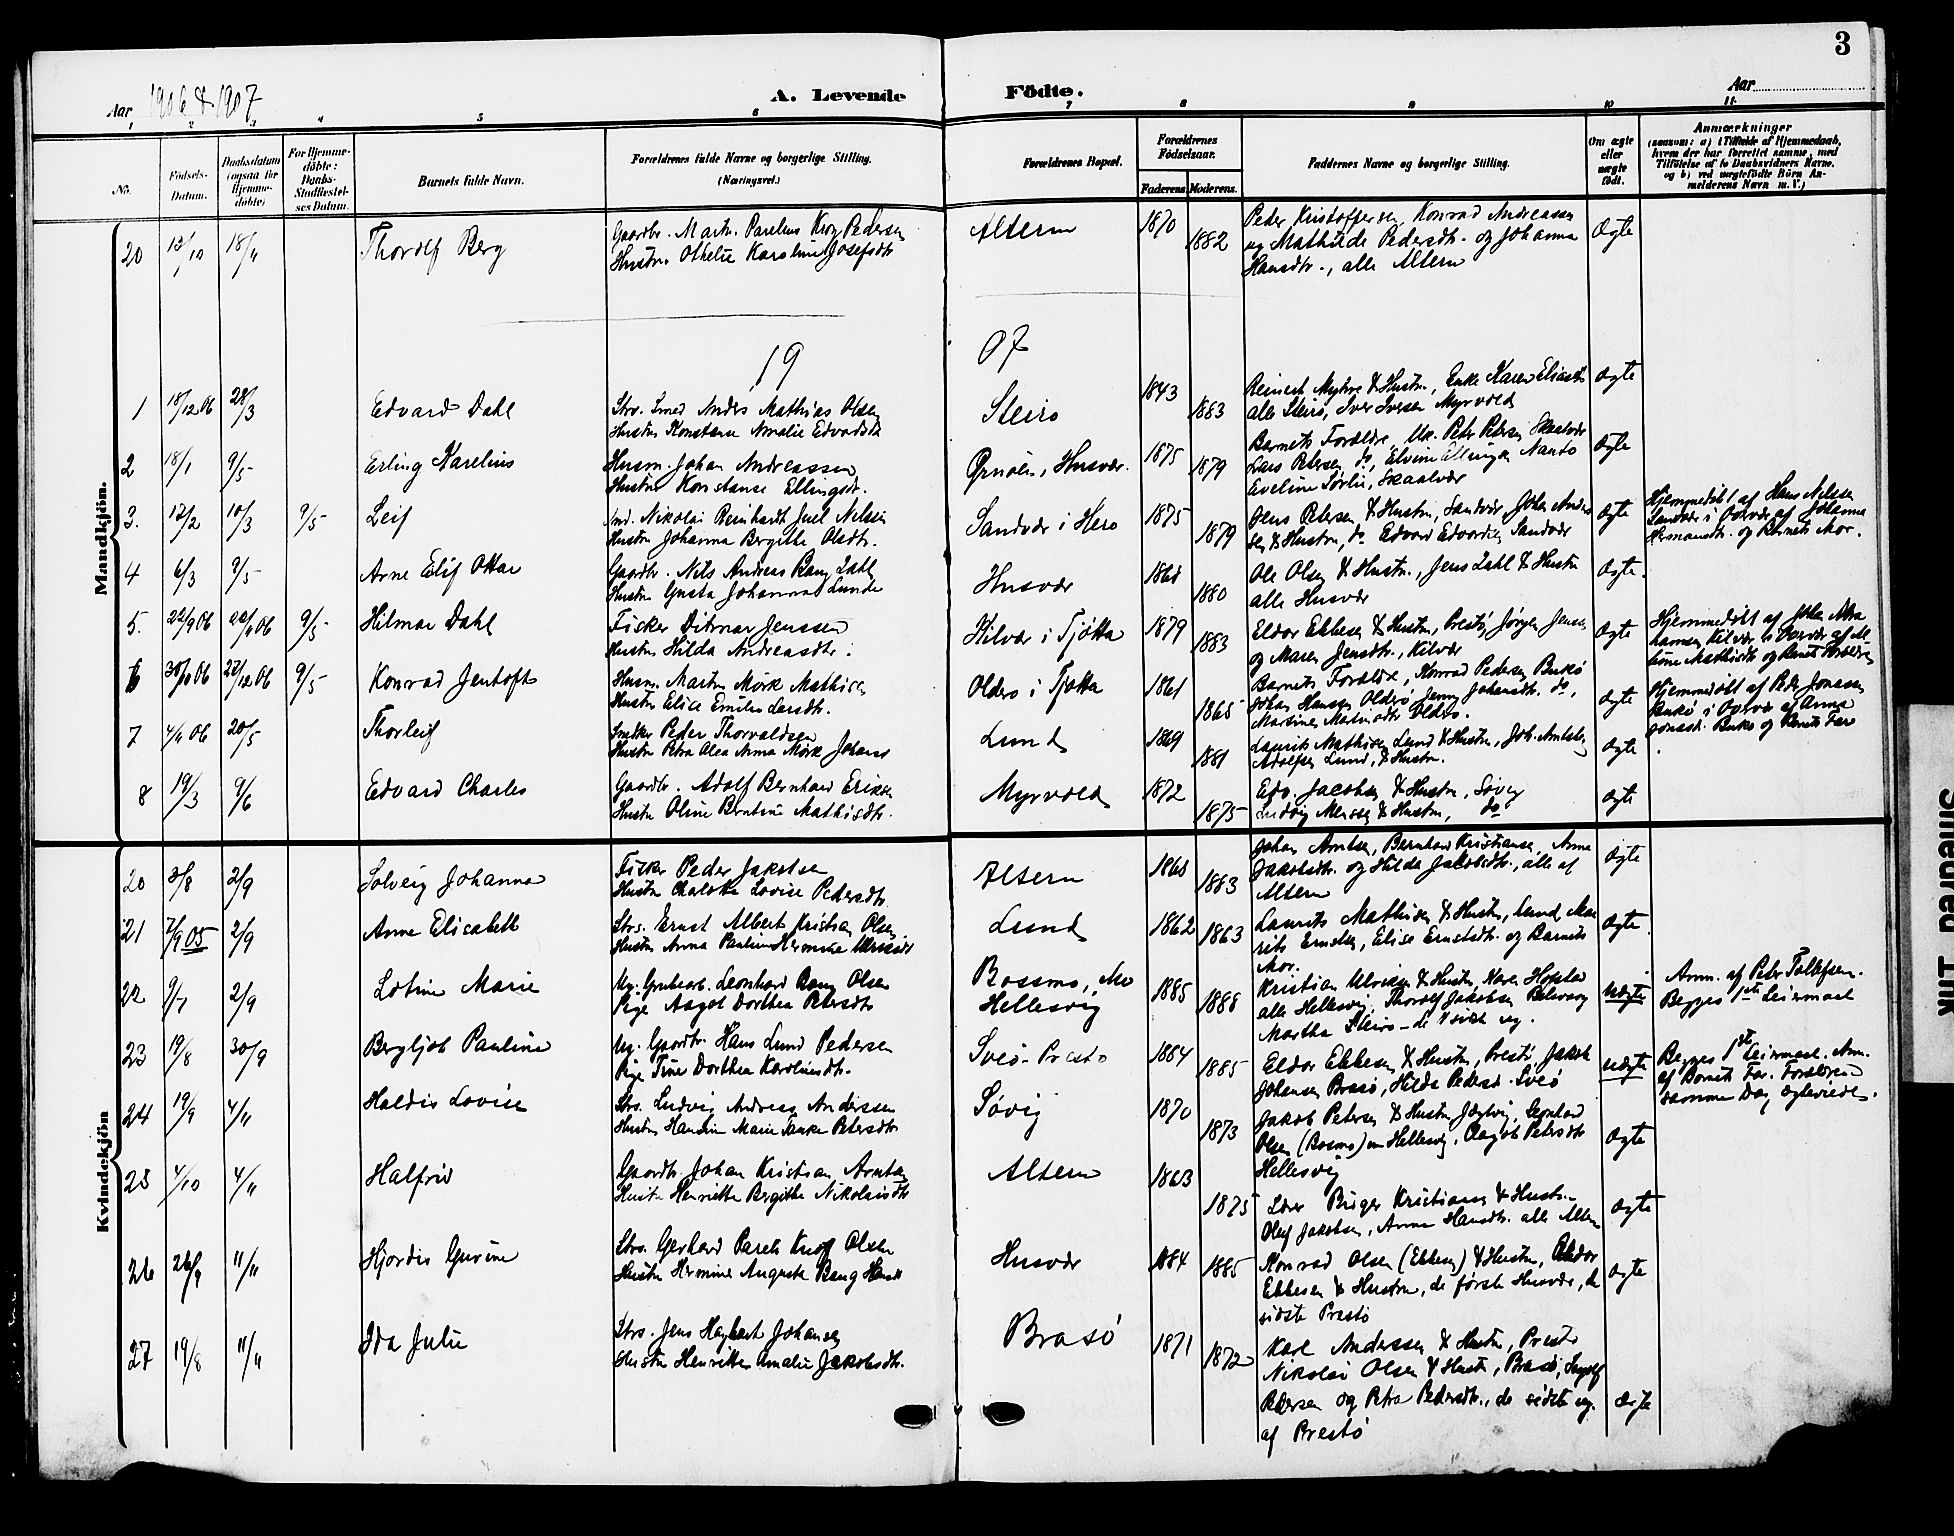 3
Aar 1906 & 1907
A. Levende
Födte.
Aar
1 2 3 4 5 6 7 8 9 10 11
No.
Födsels-Datum.
Daabsdatum (ogsaa for Hjemme-döbte)
For Hjemme-döbte: Daabs-Stadfæstel-ses Datum.
Barnets fulde Navn.
Forældrenes fulde Navne og borgerlige Stilling. (Næringsvei.)
Forældrenes Bopæl.
Forældrenes Födselsaar.
Faderens. Moderens.
Faddernes Navne og borgerlige Stilling.
Om ægte eller uægte födt.
Anmærkninger
(saasom: a) i Tilfælde af Hjemmedaab, hvem der har forrettet samme, med Tilföielse af to Daabsvidners Navne, og b) ved uægtefödte Börn An-melderens Navn m. V.)
Mandkjön.
20 13/10 18/11 Thorolf Berg
Gaardbr. Martin Parelius Krog Pedersen
Hustru Othelie Karoline Josefsdtr
Altern 1870 1882
Peder Kristoffersen, Konrad Andreassen
og Mathilde Pedersdtr. og Johanna
Hansdtr., alle Altern
Ægte
19 07
1 18/12 06 28/3 Edvard Dahl
Strs. Smed Anders Mathias Olsen
Hustru Konstanse Amalie Edvardsdtr
Steiro 1843 1883
& Hustru, Enke Karen Eliasdtr
alle Steiro, Iver Iversen Myrvold
Ægte
2 18/1 9/5 Erling Karelius
Husm. Johan Andreassen
Hustru Konstanse Ellingsdtr.
Ørnøen, Husvær. 1875 1879
Barnets Forældre, Uk. Peter Petersen Skaalvær
Lars Petersen do, Elvine Ellingsen
Eveline Sørlie, Skaalvær
Ægte
3. 12/2 10/3 9/5 Leif
Ind. Nikolai Reinhardt Juel Nilsen
Hustru Johanna Bergitte Olsdtr.
Sandvær i Herø 1875 1879
Jens Petersen & Hustru, Sandvær, Johan Anders
sen & Hustru, do Edvard Edvardsen Sandvær
Ægte
Hjemmedøbt af Hans Nilssen
Sandvær i Overvær af Johanna
Hermansdtr. og Barnets Mor.
4 6/3 9/5 Arne Elif Ottar
Gaardbr. Nils Andreas Bang Zahl
Hustru Gusta Johanna Lunde
Husvær 1868 1880
Ole Olsen & Hustru, Jens Zahl & Hustru
alle Husvær
Ægte.
5. 22/9 06 9/5 Hilmar Dahl
Fisker Ditmar Jenssen
Hustru Hilda Andreasdtr.
Kilvær i Tjøtta 1879 1883
Eldor Ebbesen & Hustru, Prestø, Jørgen Jensen
og Maren Jensdtr., Kilvær
Ægte
Hjemmedøbt af Johan Abra
hamsen, Kilvær i Overvær af
Mathisdtr og Barnets Forældre
6 30/10 06 9/5 Konrad Jentoft
Husm. Martin Mørk Mathisen
Hustru Elise Emilie Larsdtr.
Olderø i Tjøtta 1861 1865
Barnets Forældre, Konrad Pedersen Burkø
Johan Hansen Olderø, Jenny Johansdtr. do,
Martine Olderø.
Ægte
Hjemmedøbt af Peder Jonassen
Burkø i Overvær af Anna
Jonasdtr. Burkø og Barnets Far
7 4/11 06 20/5 Thorleif
Peder Thorvaldsen
Hustru Petra Olea Anna Mørk
Lund 1869 1881
Laurits Mathisen Lund & Hustru, Joh. Arntsen
Adolfsen Lund, & Hustru.
Ægte
8 19/3 9/6 Edvard Charles
Gaardbr. Adolf Bernhard Eriksen
Hustru Oline Berntine Mathisdtr.
Myrvold 1872 1875
Edv. Jacobsen & Hustru, Søvig
Ludvig & Hustru, do
Ægte
Kvindekjön
20 3/8 2/9 Solveig Johanna
Fisker Peder Jakobsen
Hustru Charlotte Lovise Pedersdtr.
Altern 1868 1883
Johan Arntsen, Bernhard Kristiansen, Anna
Jakobsdtr. og Hilda Jakobsdtr., alle af
Altern
Ægte
21 7/9 05 2/9 Anne Elisabeth
Strs. Ernst Albert Kristian Olsen
Hustru Anna Pauline Hermine Ulriksdtr
Lund 1862 1863
Laurits Mathisen & Hustru, Lund, Mau
rits Ernstsen, Elise Ernstsdtr. og Barnets
Mor.
Ægte
22 9/7 2/9 Lotine Marie
Leonhard Bang Olsen
Pige Aagot Dorthea Petersdtr
Bossmo, Mo
Hellesvig 1885 1888
Kristian Ulriksen & Hustru, Karen Hofstad
alle Hellesvig, Thorolf Jakobsen
Martha Steiro - de 2 sidste ug.
Uægte
Anm. af Peter Tollefsen.
Begges 1ste Leiermaal
23 19/8 30/9 Bergljot Pauline
Ug. Gaardbr. Hans Lund Pedersen
Pige Tine Dorthea Karolinusdtr.
Sveø - Prestø 1884 1885
Eldor Ebbesen & Hustru, Prestø, Jakob
Johansen Brasø, Hilda Pedersd. Sveø
uægte
Begges 1ste Leiermaal. Anm.
af Barnets Far. Forældrene
samme Dag ægteviede.
24 19/9 4/11 Haldis Lovise
Strs. Ludvig Andreas Anderssen
Hustru Hansine Marie Petersdtr
Søvig 1870 1873
Jakob Petersen & Hustru, Leonhard
Olsen (Bosmo) nu Hellesvig. Aagot Petersdtr
Hellesvig
Ægte
25 4/10 4/11 Halfrid
Gaardbr. Johan Kristian Arntsen
Hustru Henriette Bergitte Nikolaisdtr
Altern 1863 1875
Lærer Birger Kristiansen & Hustru
Oluf Jakobsen, Anna Hansdtr. alle Altern
Ægte
26 26/9 11/11 Hjordis Guvine
Strs. Gerhard Pareli Knof Olsen
Hustru Hermine Augusta Bang
Husvær 1884 1885
Konrad Olsen (Ebbesen) & Hustru, Eldor
Ebbesen & Hustru, de første Husvær, de
sidste Prestø
Ægte
27 19/8 11/11 Ida Julie
Strs. Jens Hagbart Johansen
Hustru Henriette Amalie Jakobsdtr.
Brasø 1871 1872
Karl Anderssen & Hustru, Prestø
Nikolai Olsen & Hustru, Brasø, Ingolf
Pedersen og Petra Pedersdtr., de sidste ug.
af Prestø
Ægte